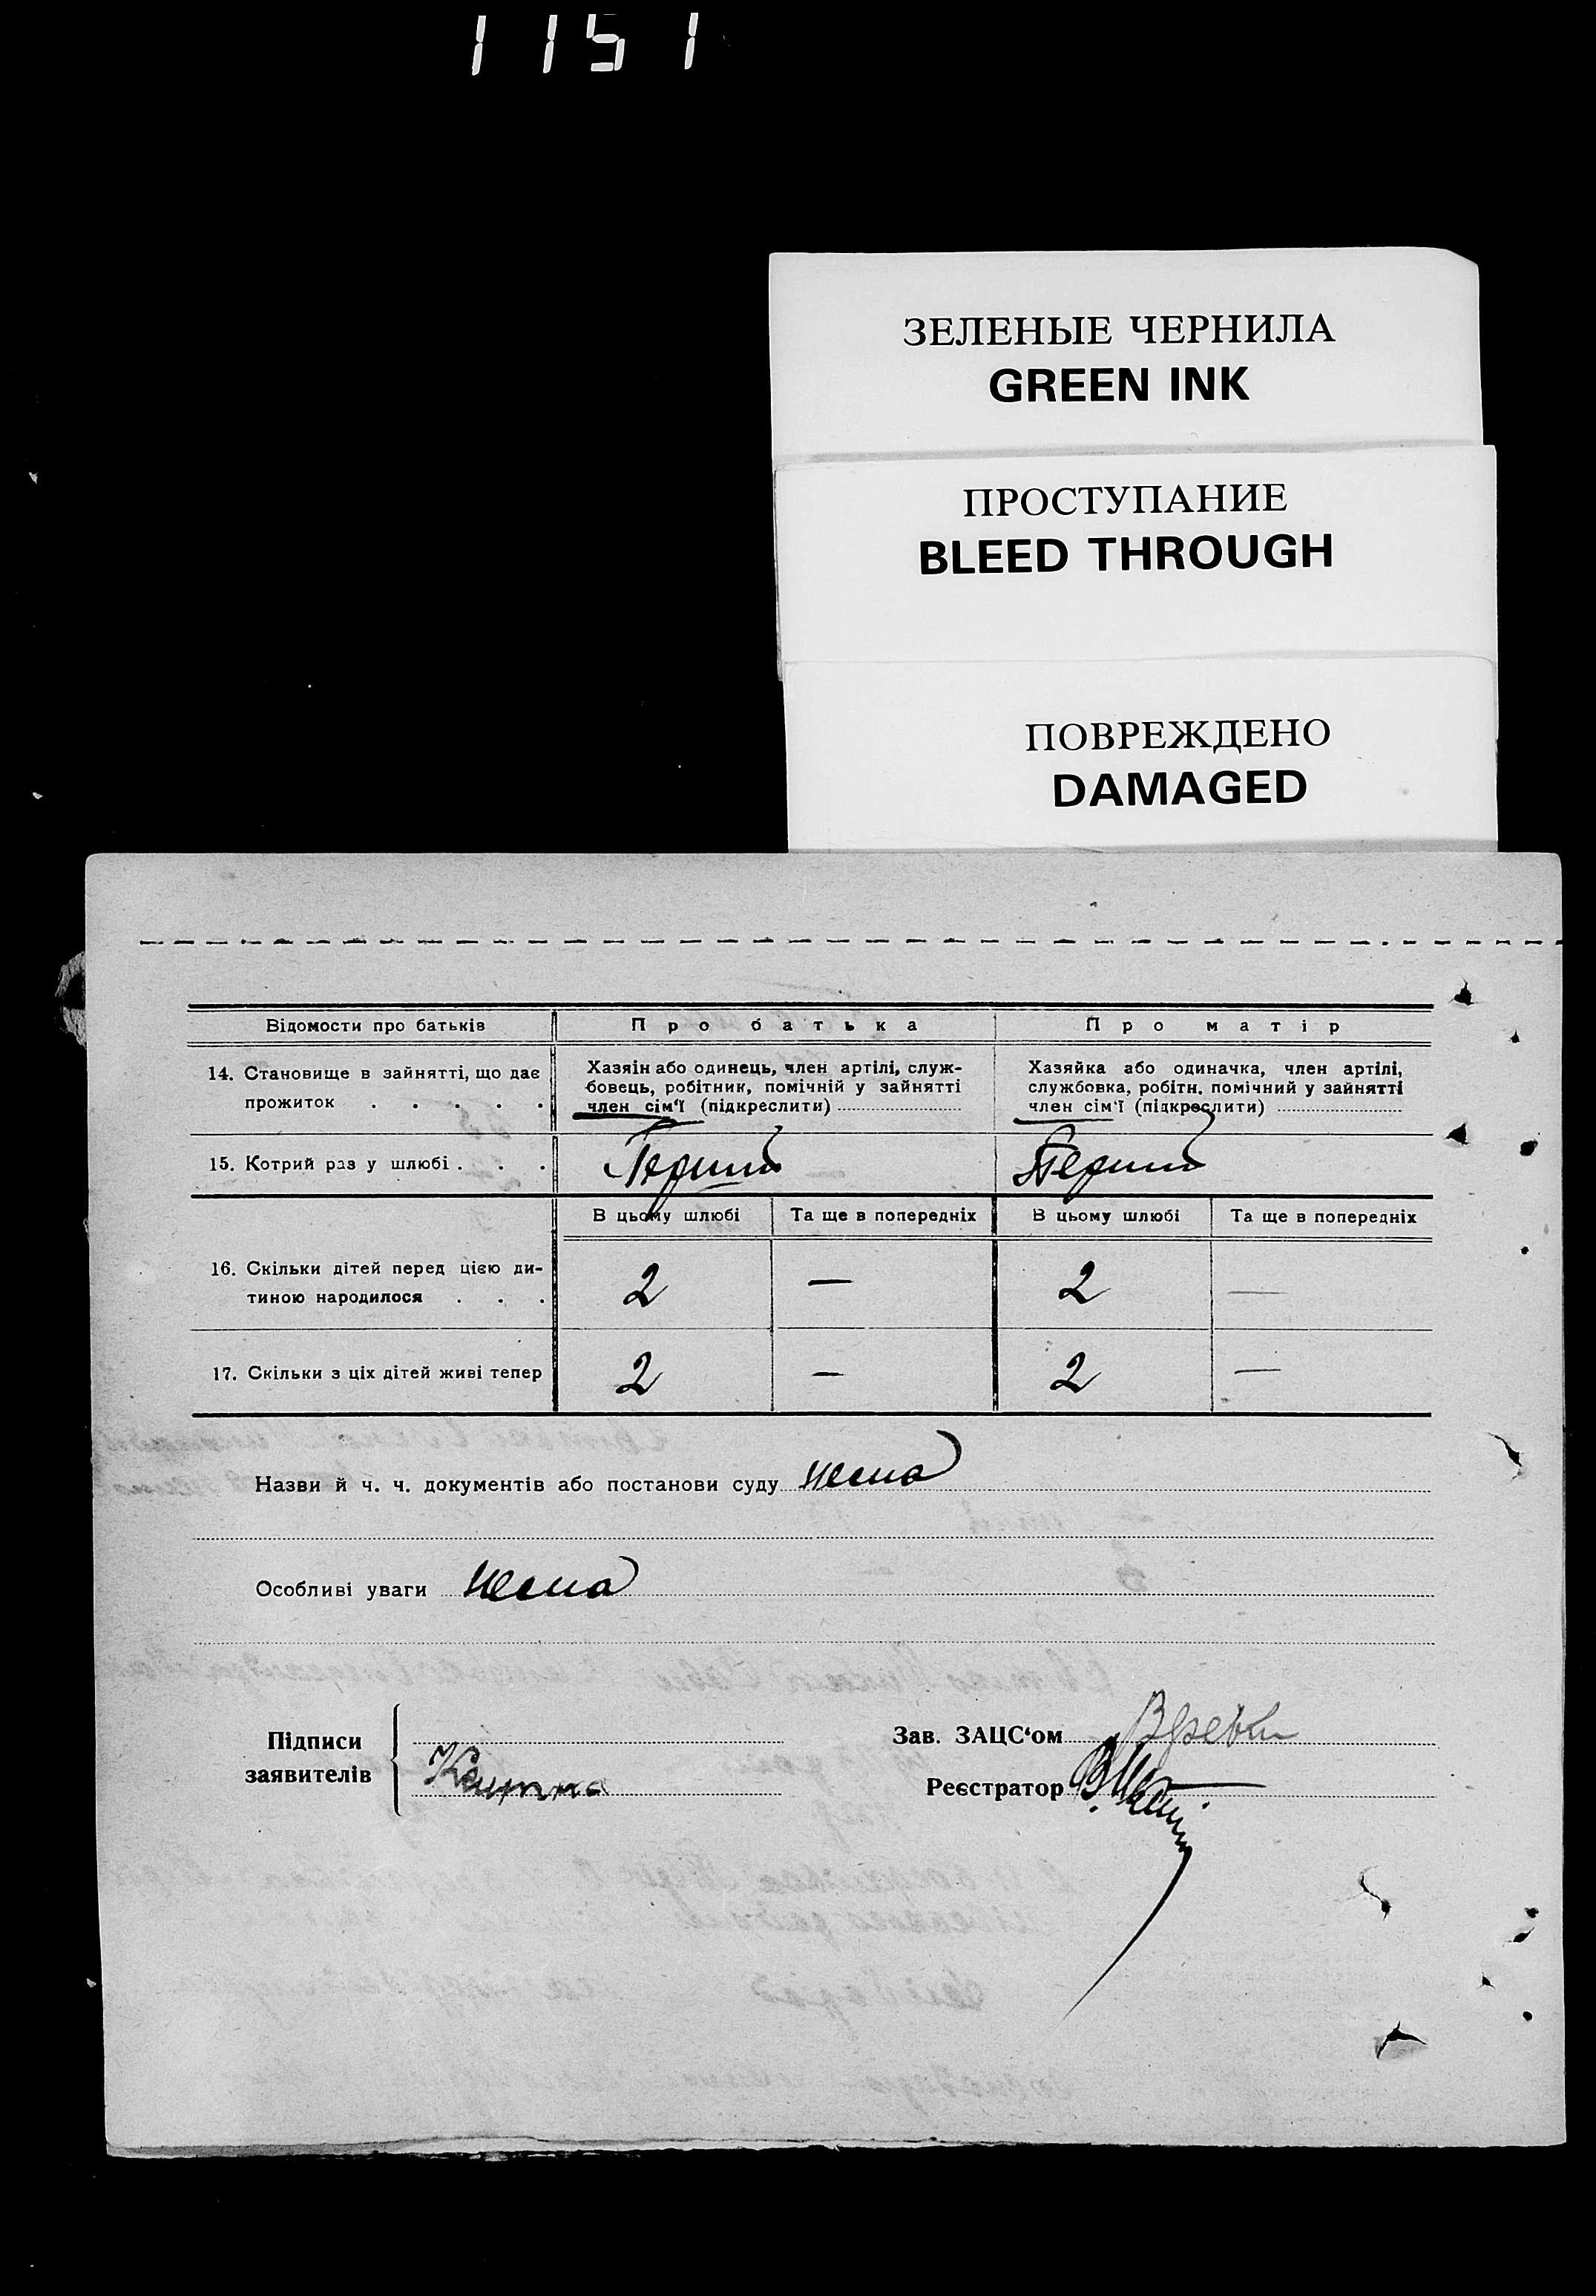 1151
ЗЕЛЕНЫЕ ЧЕРНИЛА
GREEN INK
ПРОСТУПАНИЕ
BLEED THROUGH
ПОВРЕЖДЕНО
DAMAGED
Відомости про батьків Про батька Про матір
14. Становище в зайнятті, що дає прожиток . . . . .
Хазяін або одинець, член артілі, служ-
бовець, робітник, помічній у зайнятті
член сім'ї (підкреслити)
Хазяйка або одиначка, член артілі,
службовка, робітн. помічний у зайнятті
член сім'ї (підкреслити)
15. Котрий раз у шлюбі . . . Перший Перший
В цьому шлюбі Та ще в попередніх В цьому шлюбі Та ще в попередніх
16. Скільки дітей перед цією ди-
тиною народилося . . . 2 — 2 —
17. Скільки з ціх дітей живі тепер 2 — 2 —
Назви й ч. ч. документів або постанови суду нема
Особливі уваги нема
Підписи
заявителів
Зав. ЗАЦС'ом
Реєстратор